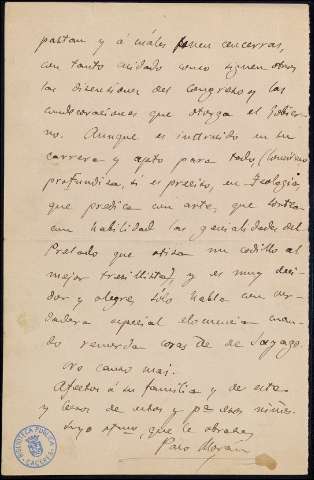 pastan y á cuáles ponen cencerras,
con tanto cuidado como siguen otros
las discusiones del Congreso y las
condecoraciones que otorga el Gobier-
no. Aunque es instruido en su
carrera y apto para todo (
profundiza, si es preciso, en Teología,
que predica con arte, que sortea
con habilidad las genialidades del
Prelado que atiza un codillo al
mejor tresillista), y es muy deci-
dor y alegre, sólo habla con ver-
dadera especial elocuencia cuan-
do recuerda cosas de de Sayago.
No canso mas.
Afectos á su familia y de esta
y besos de estos y pª esos niños.
Suyo afmo, que le abraza
Paco Morán
BIBLIOTECA PUBLICA
CACERES